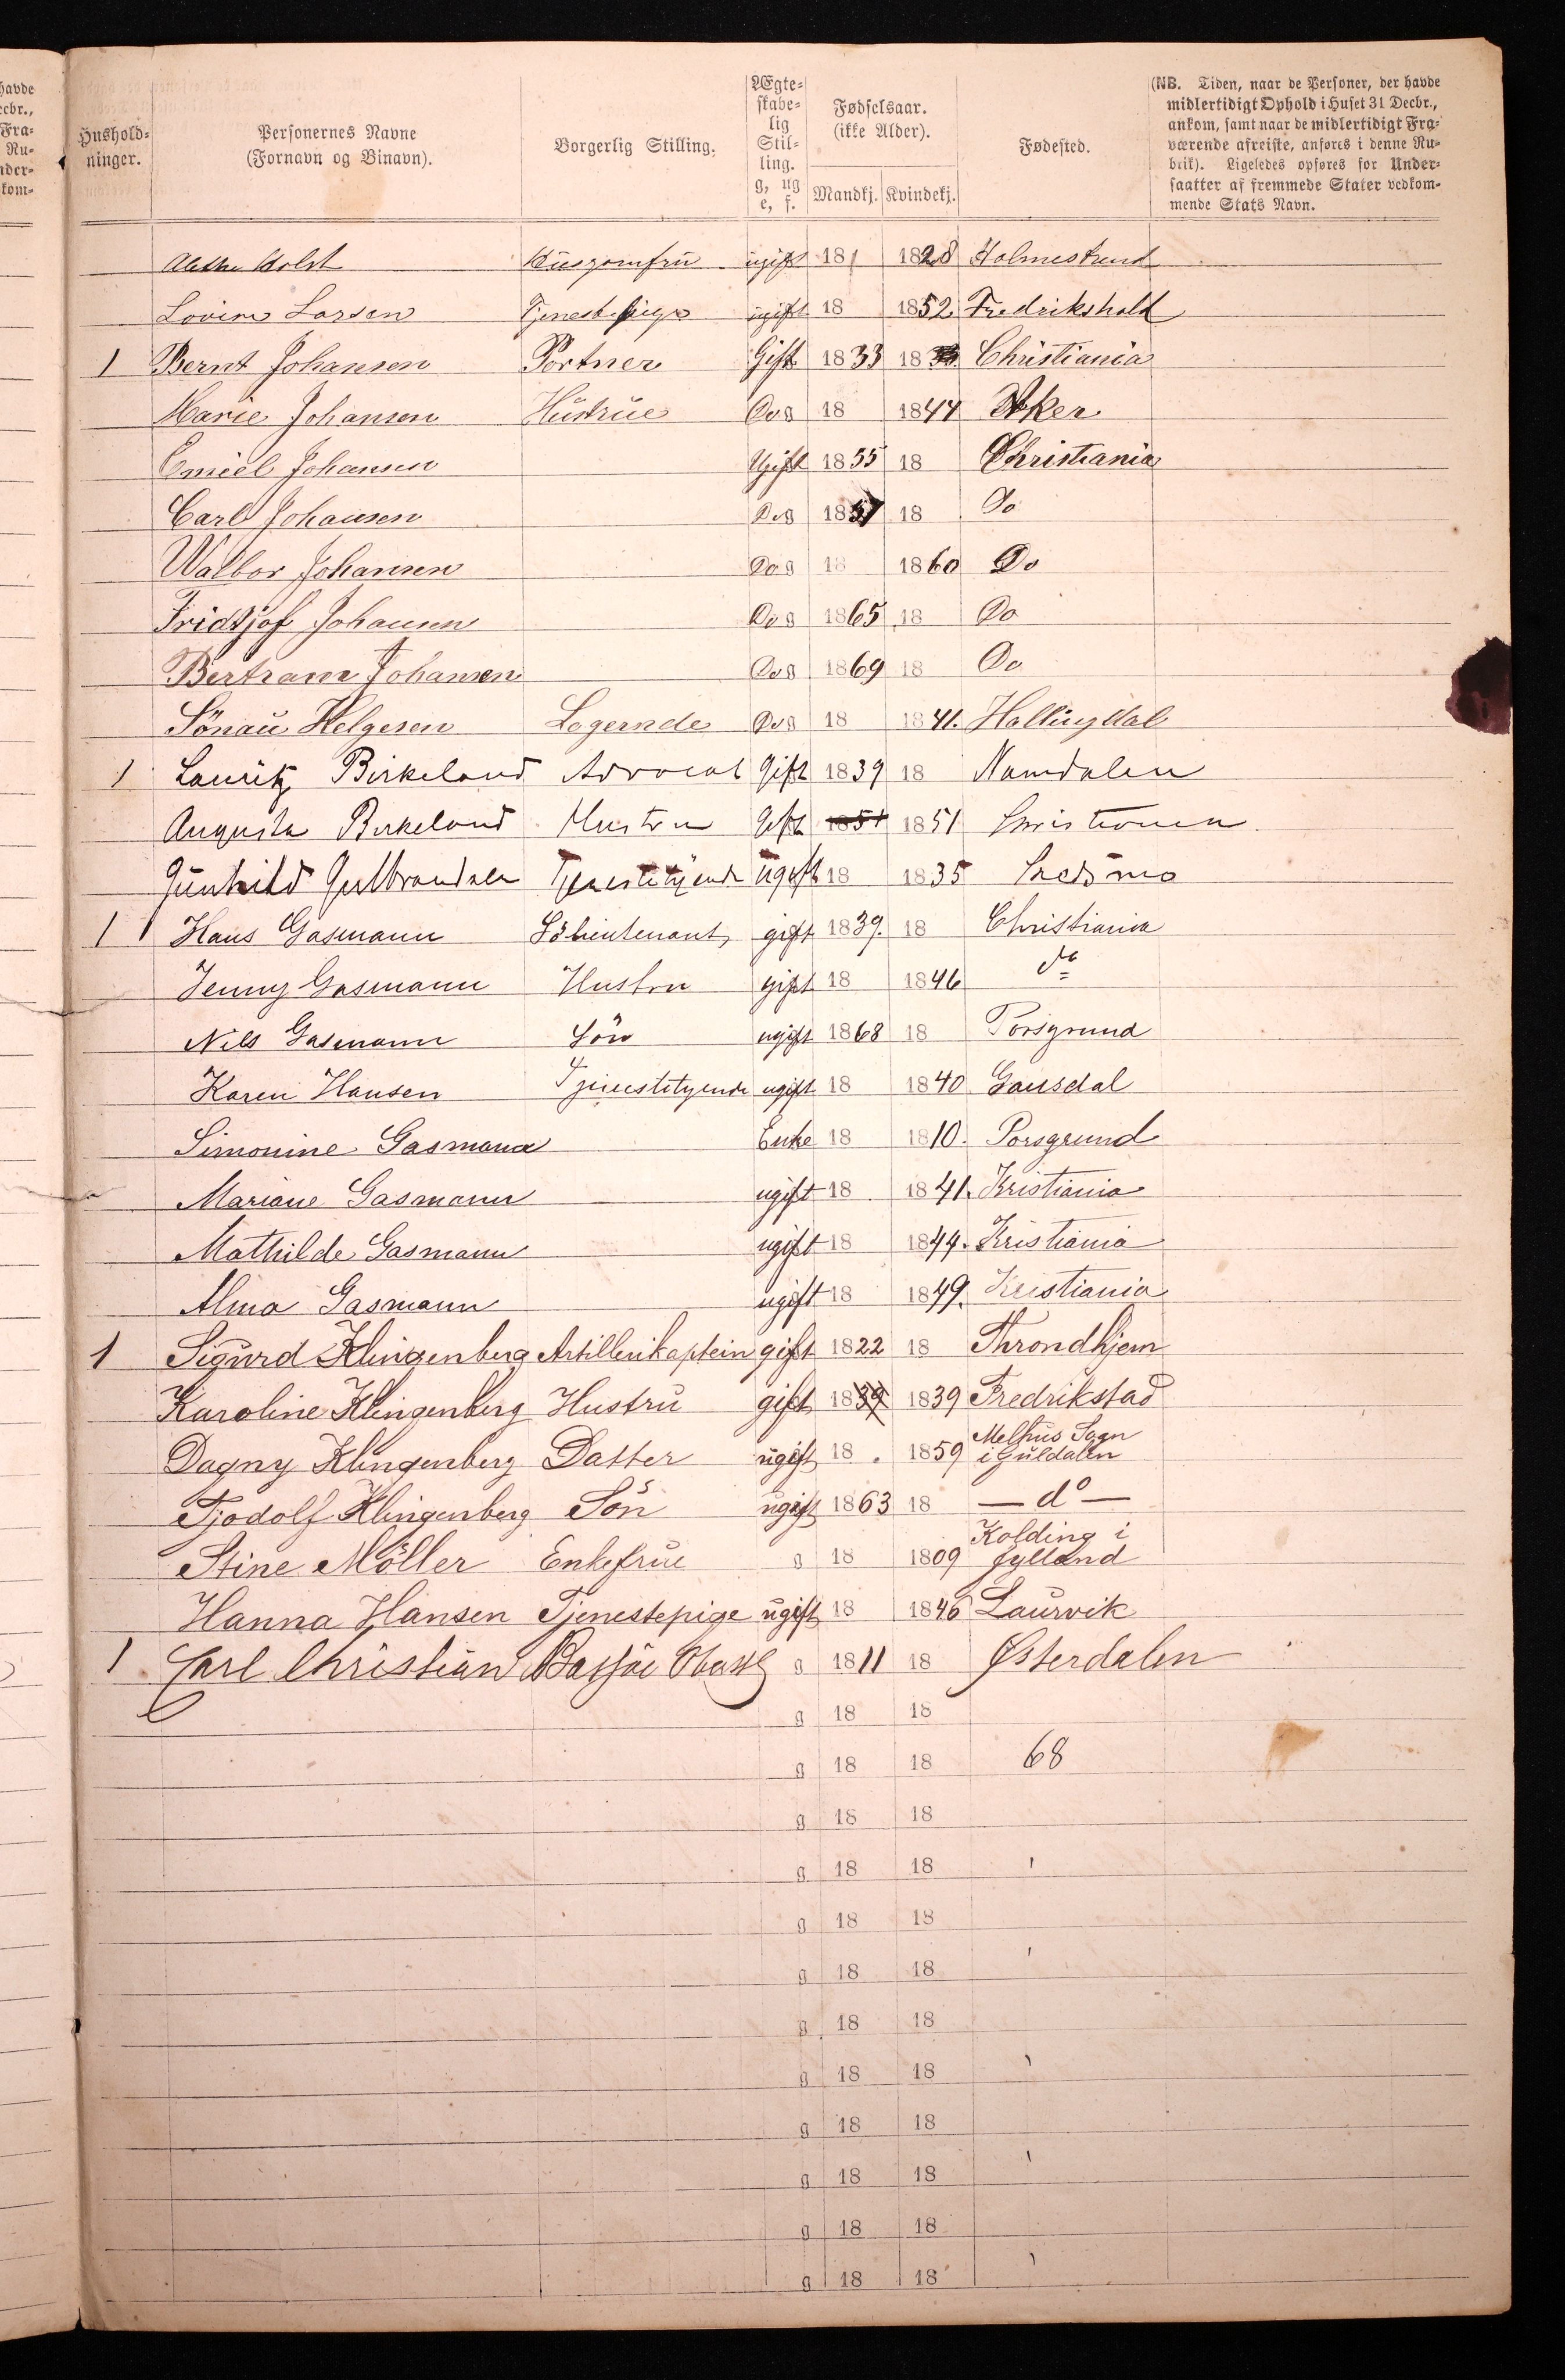 havde
ecbr.,
Fra-
Ru-
nder-
kom-
Hushold-
ninger.
Personernes Navne
(Fornavn og Binavn).
Borgerlig Stilling.
Ægte-
skabe-
lig
Stil-
ling.
g, ug
e, f.
Fødselsaar.
(ikke Alder).
Mandkj. Kvindekj.
Fødested.
(NB. Tiden, naar de Personer, der havde
midlertidigt Ophold i Huset 31 Decbr.,
ankom, samt naar de midlertidigt Fra-
værende afreiste, anføres i denne Ru-
brik). Ligeledes opføres for Under-
saatter af fremmede Stater vedkom-
mende Stats Navn.
Holst Husjomfru ugift 18 1828 Holmestrand
Lovise Larsen Tjenestepige ugift 18 1852 Fredrikshald
1 Bernt Johansen Portner Gift 1833 18 Christiania
Marie Johansen Hustrue Do g 18 1844 Aker
Emiel Johansen Ugift 1855 18 Christiania
Carl Johansen Do g 1857 18 Do
Walbor Johansen Do g 18 1860 Do
Fridtjof Johansen Do g 1865 18 Do
Bertram Johansen Do g 1869 18 Do
Sönau Helgesen Logernde Do g 18 1841. Hallingdal
1 Lauritz Birkeland Advocat Gift 1839 18 Namdalen
Augusta Birkeland Hustru Gift 1851 1851 Christiania
Gunhild Gulbrandsen Tjenestetyende ugift 18 1835 Skedsmo
1 Hans Gasmann Sölieutenant, gift 1839. 18 Christiania
Jenny Gasmann Hustru gift 18 1846 do
Nils Gasmann Sön ugift 1868 18 Porsgrund
Karen Hansen Tjenestetyende ugift 18 1840 Gausdal
Simonine Gasmann Enke 18 1810. Porsgrund
Mariane Gasmann ugift 18 1841. Kristiania
Mathilde Gasmann ugift 18 1844. Kristiania
Alma Gasmann ugift 18 1849. Kristiania
1 Sigurd Klingenberg Artillerikaptein gift 1822 18 Throndhjem
Karoline Klingenberg Hustru gift 1839 1839 Fredrikstad
Dagny Klingenberg Datter ugift 18 1859 Melhus Sogn
i Guldalen
Tjodolf Klingenberg Sön ugift 1863 18 — do —
Stine Möller Enkefrue g 18 1809 Kolding i
Jylland
Hanna Hansen Tjenestepige ugift 18 1846 Laurvik
1 Carl Christian g 1811 18 Østerdalen
g 18 18
g 18 18 68
g 18 18
g 18 18
g 18 18
g 18 18
g 18 18
g 18 18
g 18 18
g 18 18
g 18 18
g 18 18